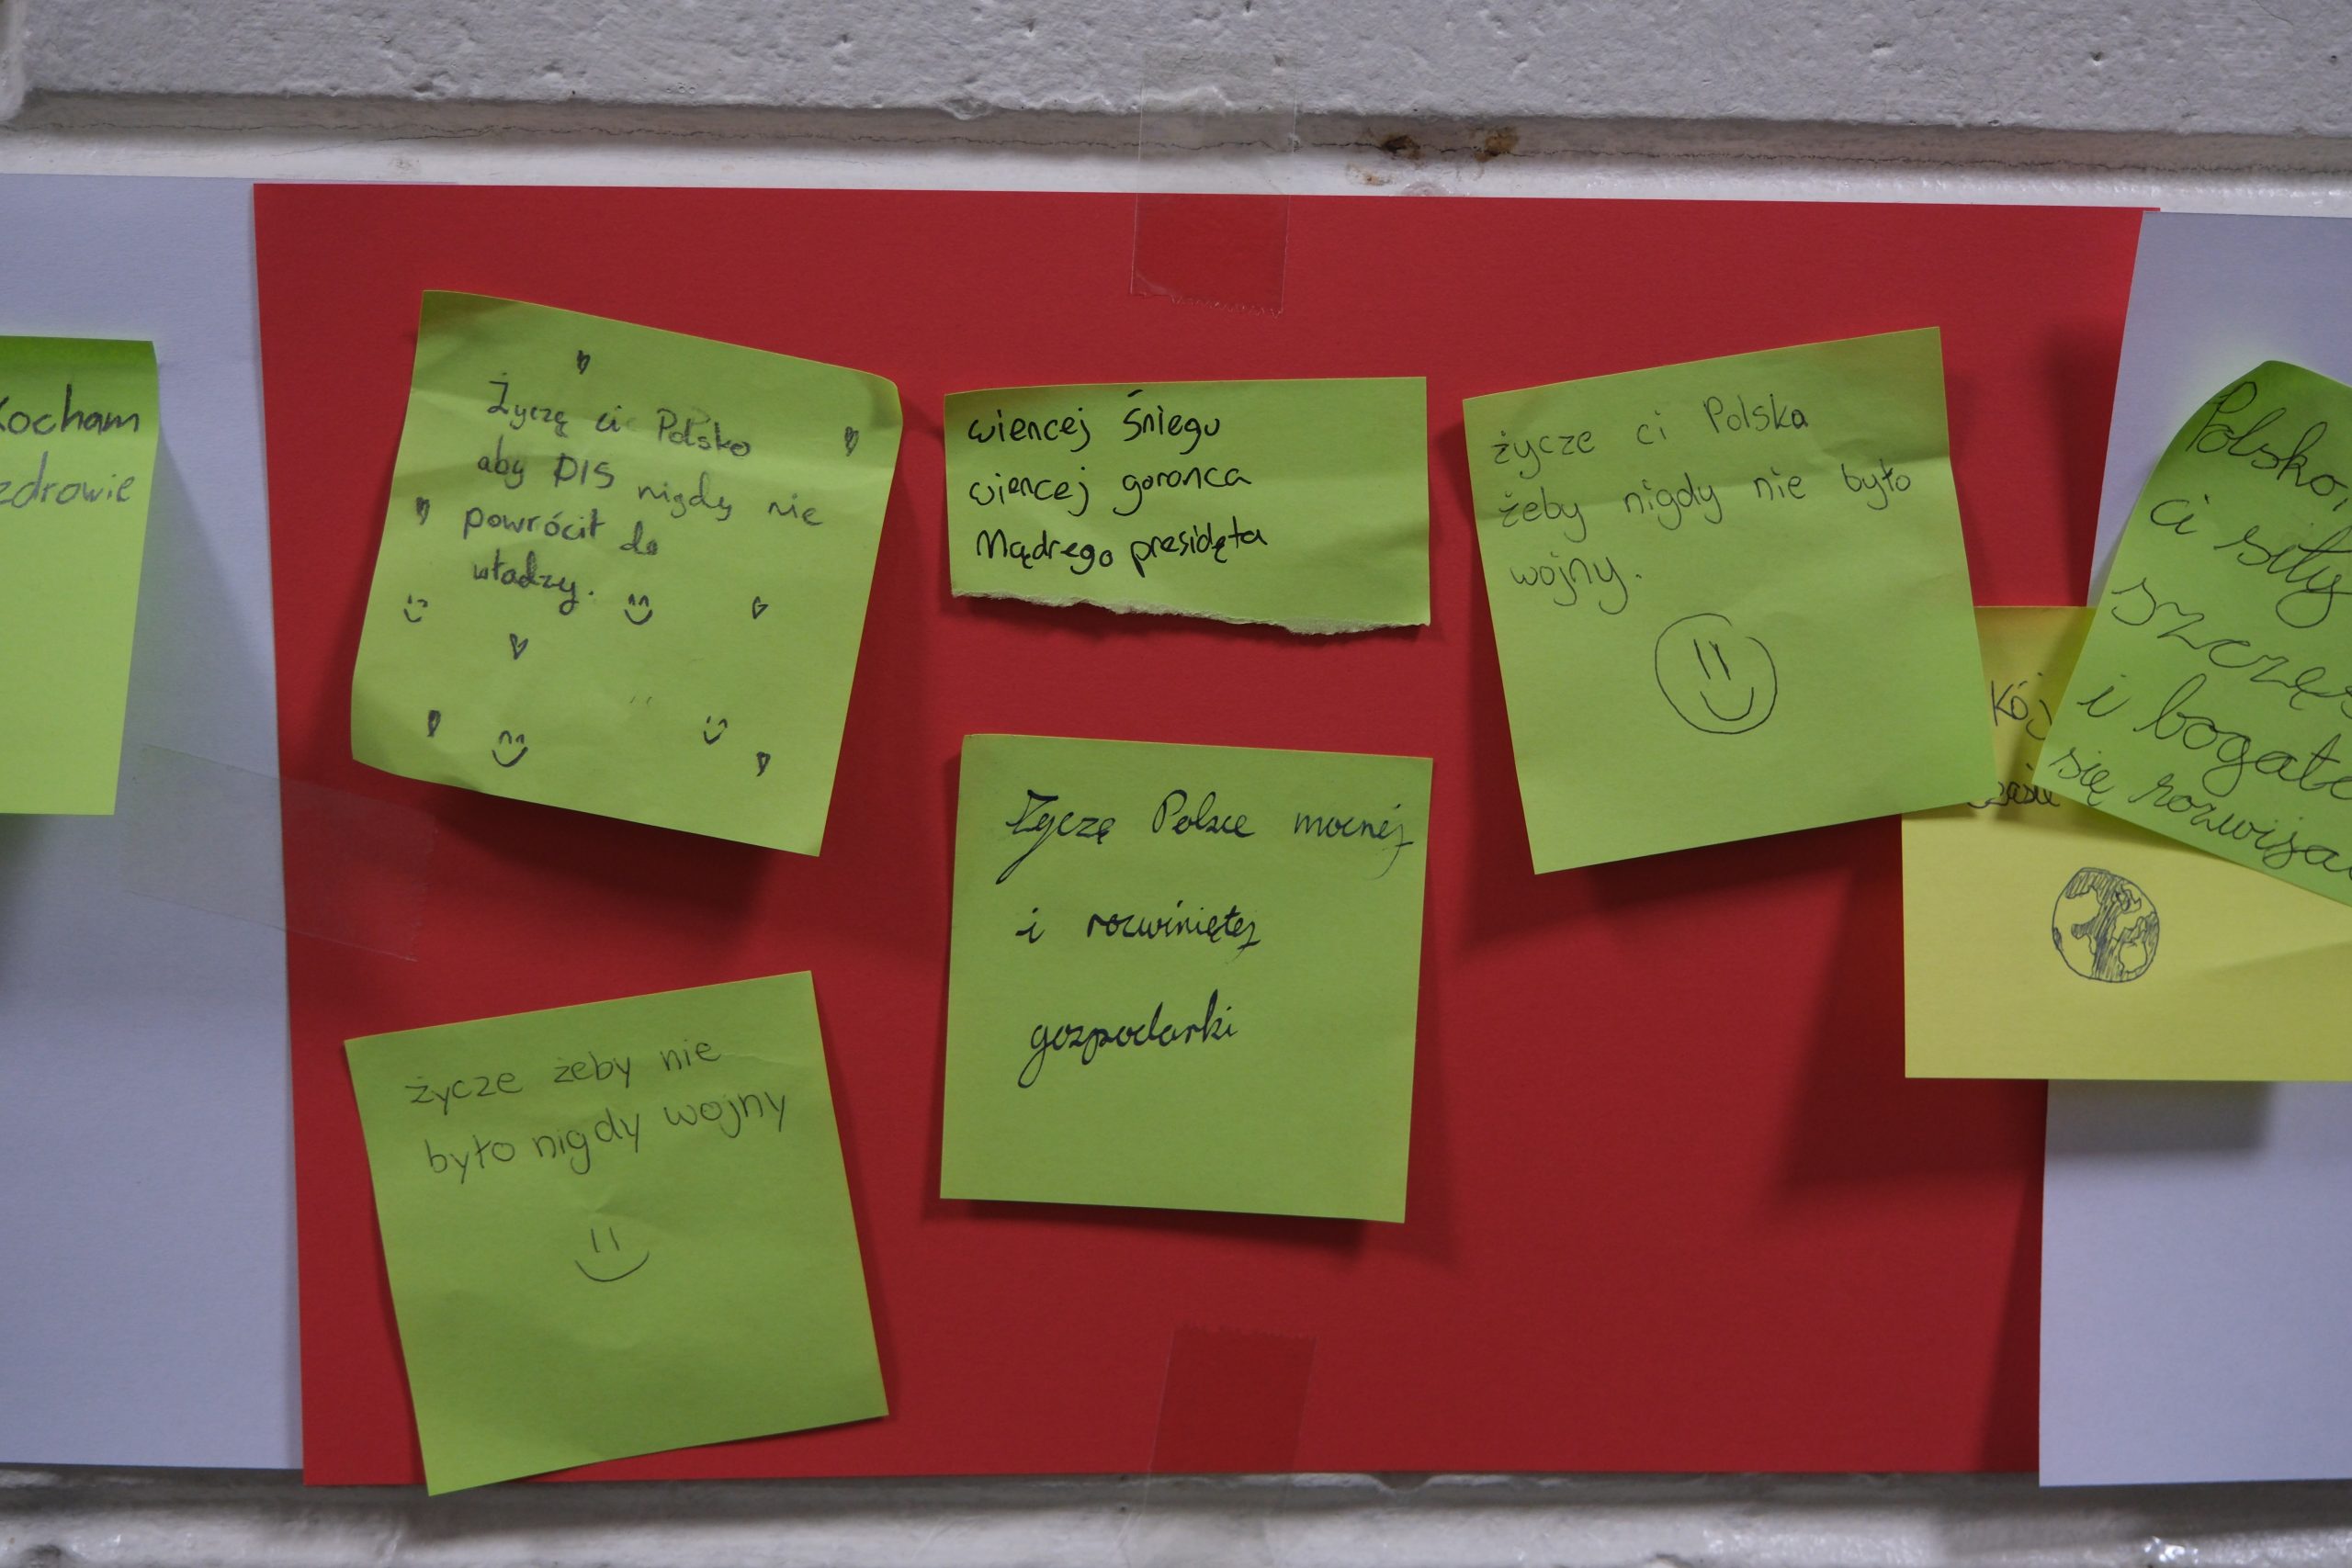 Kocham
zdrowie
Życzę ci Polsko
aby PIS nigdy nie
powrócił do
władzy.
wiencej śniegu
wiencej goronca
Mądrego presidęta
życze ci Polska
żeby nigdy nie było
wojny.
Życzę Polsce mocnej
i rozwiniętej
gospodarki
życze żeby nie
było nigdy wojny
Polsko,
ci siły
szczęś
i bogate
się rozwija
kój